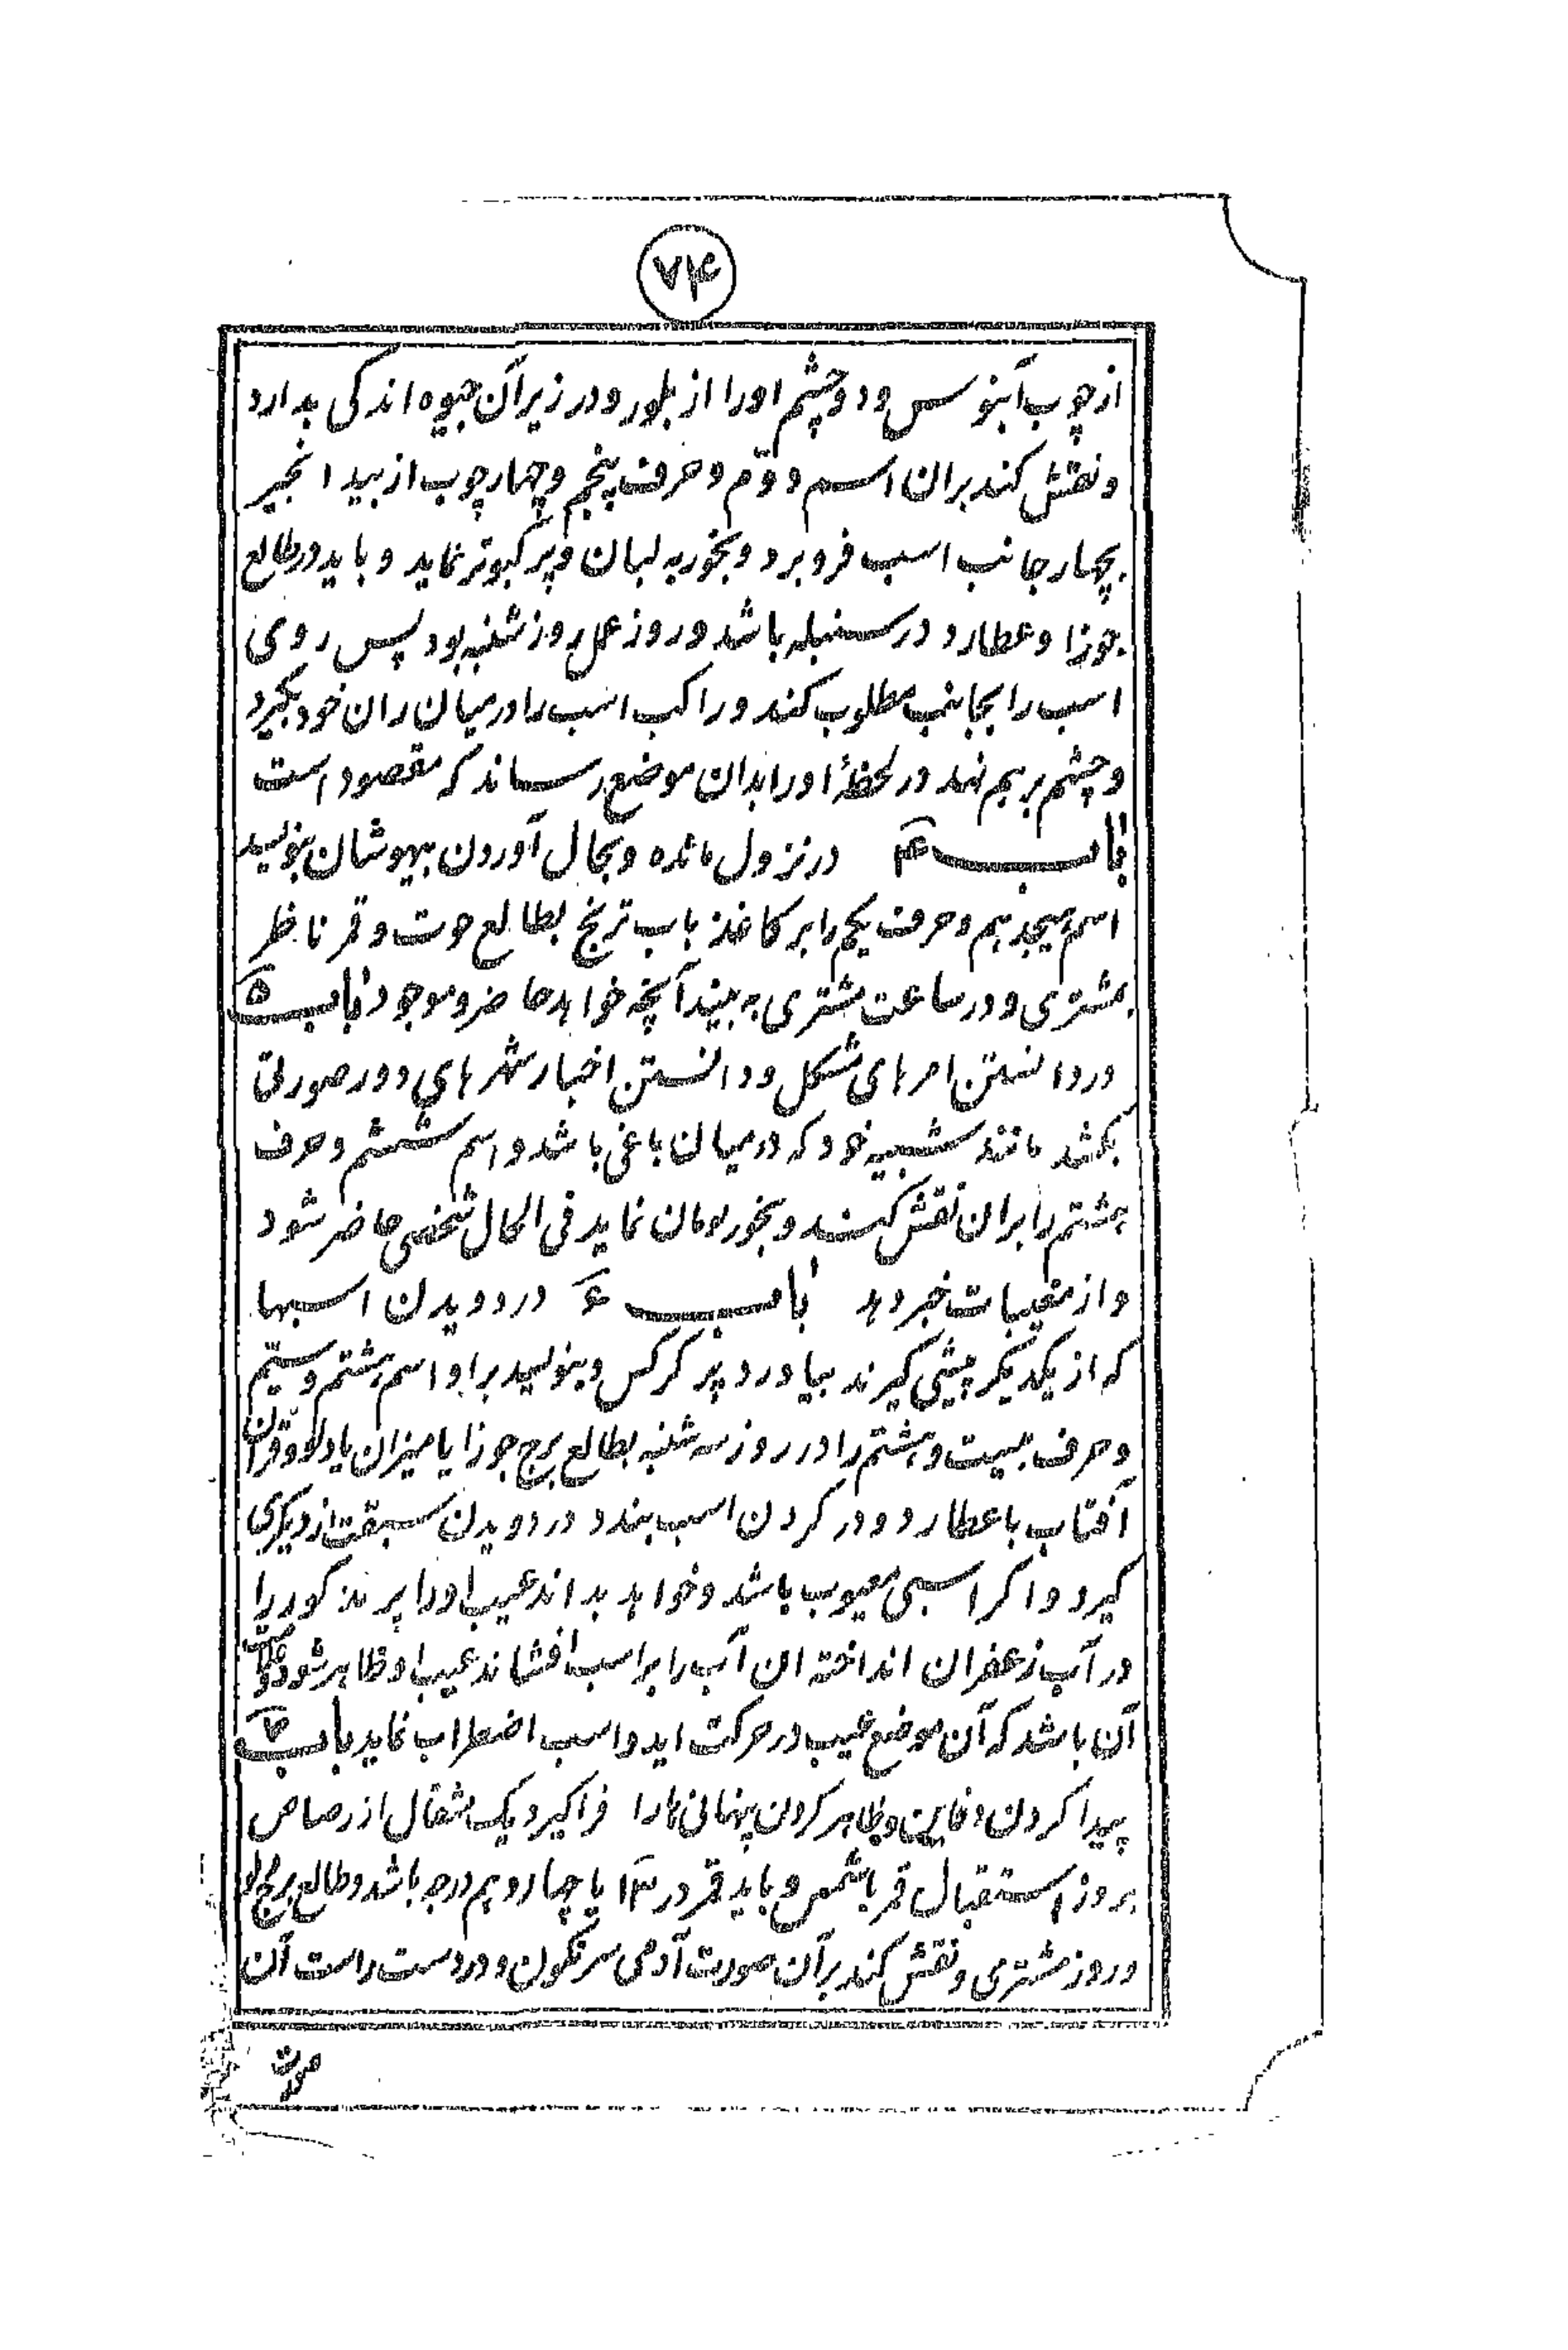 ۷۴
از چوب آبنوس و دو چشم او را از بلور و در زیر آن جیوه اندکی بدارد
و نقش کند بران اسم دوّم و حرف پنجم و چهار چوب از بید انجیر
بچهار جانب اسب فرو برد و بخور به لبان و پر کبوتر نماید و باید در طالع
جوزا و عطارد در سنبله باشد و روز عمل روز شنبه بود پس روی
اسب را بجانب مطلوب کند و راکب اسب را در میان ران خود بگیرد
و چشم بر هم نهد در لحظهٔ او را بدان موضع رساند که مقصود است
باب ۴ در نزول مائده و بحال آوردن بیهوشان بنویسد
اسم هیجدهم و حرف یکم را بر کاغذ باب ترنج بطالع حوت و قمر ناظر
بمشتری و در ساعت مشتری به بیند آنچه خواهد حاضر و موجود باب ۵
در دانستن امرهای مشکل و دانستن اخبار شهرهای دور صورتی
بکشد مانند شبیه خود که در میان باغی باشد و اسم ششم و حرف
هشتم را بران نقش کند و بخور لومان نماید فی الحال شخصی حاضر شود
و از مغیبات خبر دهد باب ۶ در دویدن اسبها
که از یکدیگر پیشی گیرند بیاورد پر کرکس و بنویسد بر او اسم هشتم و بیستم
و حرف بیست و هشتم را در روز سه شنبه بطالع برج جوزا یا میزان یا دلو و قران
آفتاب با عطارد و در کردن اسب بندد در دویدن سبقت از دیگری
گیرد و اگر اسبی معیوب باشد و خواهد بداند عیب او را پر مذکور را
در آب زعفران انداخته ان آب را بر اسب افشاند عیب او ظاهر شود
آن باشد که آن موضع عیب در حرکت اید و اسب اضطراب نماید باب ۷
پیدا کردن دفاین و ظاهر کردن پنهانی ها را فراگیرد یک مثقال از رصاص
بروز استقبال قمر با شمس و باید قمر در ۱۳ یا چهاردهم درجه باشد و طالع برج دلو
و روز مشتری و نقش کند بر آن صورت آدمی سرنگون و در دست راست آن
صورت